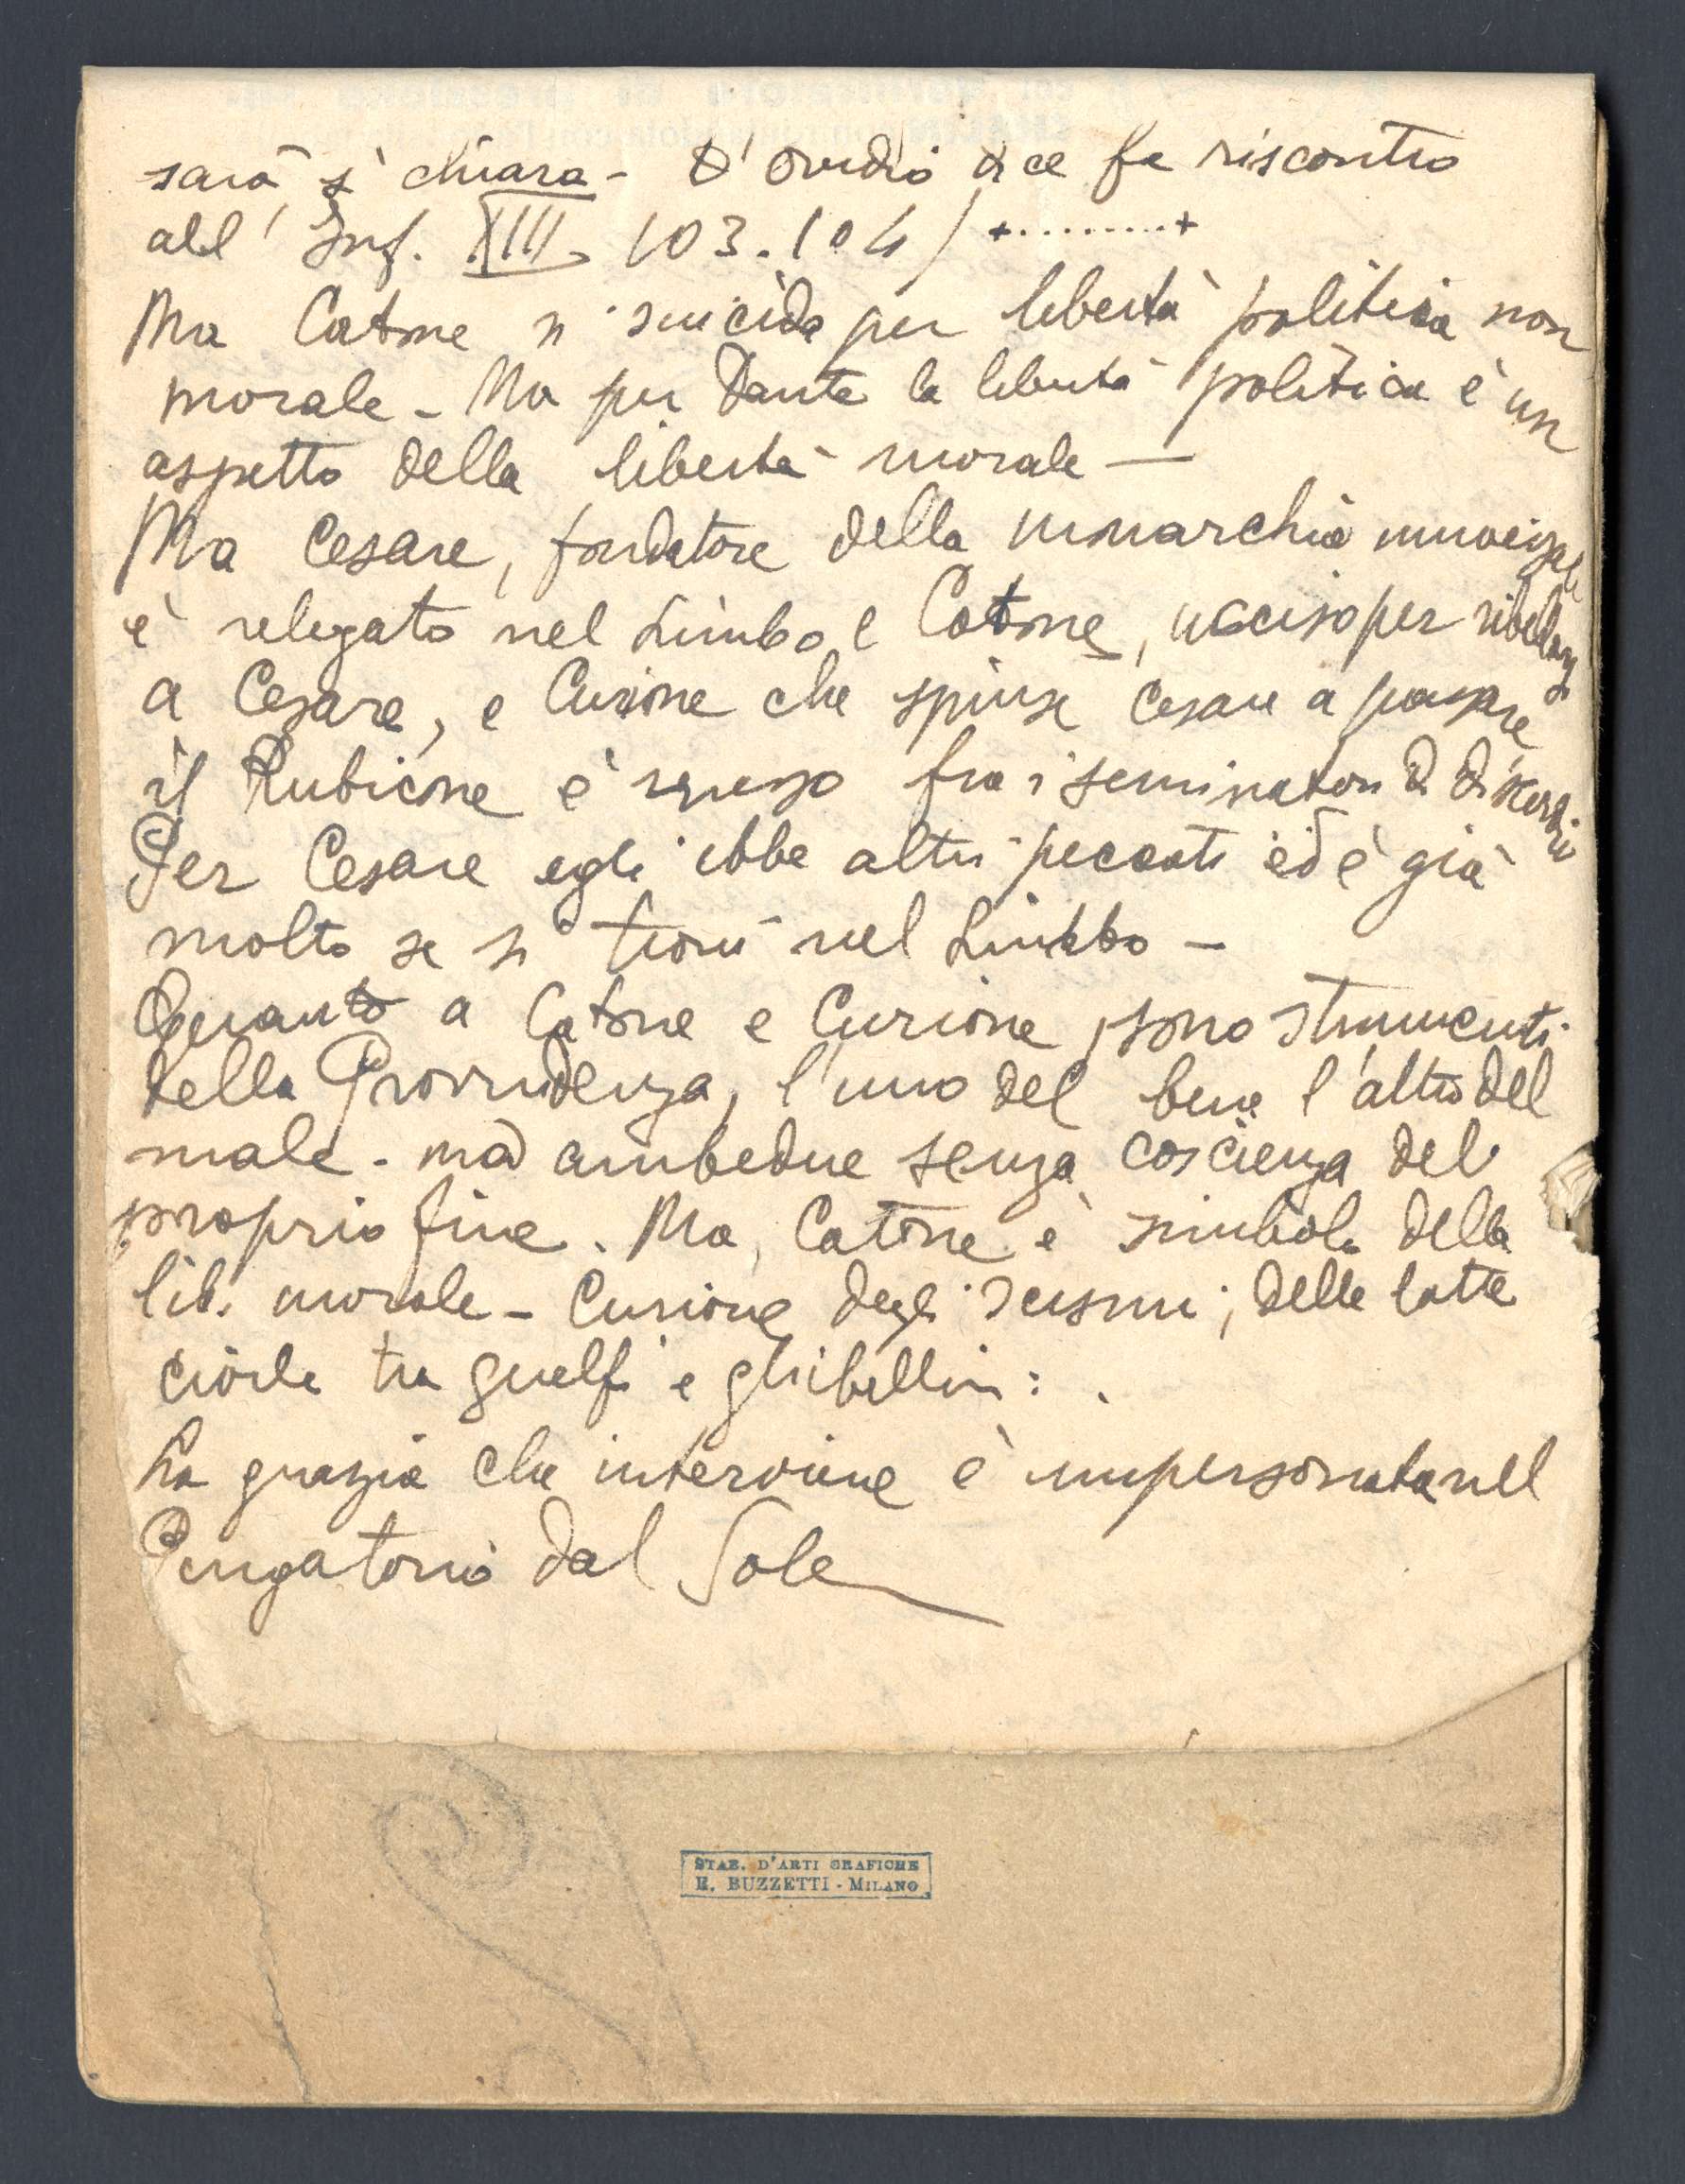 sarà sì chiara - D'Ovidio dice fa riscontro
all'Inf. XIII. 103.104 / +.........+
Ma Catone si suicida per libertà politica non
morale - Ma per Dante la libertà politica è un
aspetto della libertà morale —
Ma Cesare, fondatore della monarchia universale
è relegato nel Limbo e Catone, ucciso per ribellarsi
a Cesare, e Curione che spinse Cesare a passare
il Rubicone è messo fra i seminatori di discordie
Per Cesare egli ebbe altri peccati ed è già
molto se si trovi nel Limbo -
Quanto a Catone e Curione, sono strumenti
della Provvidenza, l'uno del bene l'altro del
male - ma ambedue senza coscienza del
proprio fine. Ma, Catone è simbolo della
lib. morale - Curione degli scismi, delle lotte
civile tra guelfi e ghibellini: .
La grazia che interviene è impersonata nel
Purgatorio dal Sole
STAB. D'ARTI GRAFICHE
E. BUZZETTI - MILANO